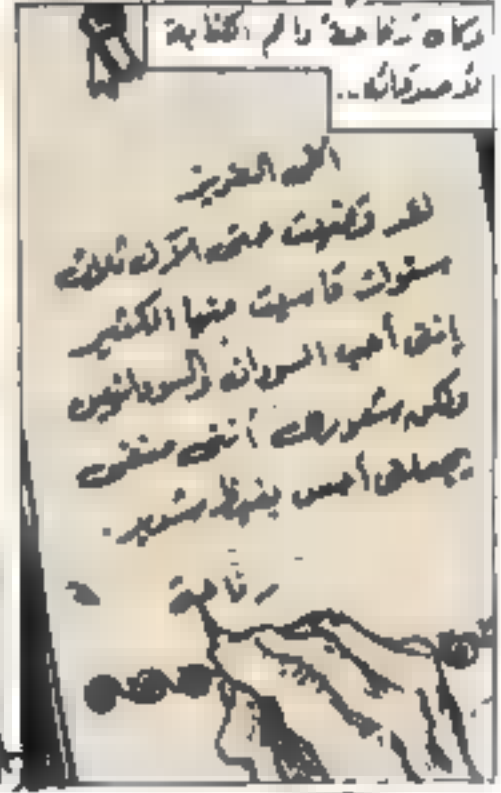 وكان رفاعة دائم الكتابة
لأصدقائه..
أخى العزيز
لقد قضيت حتى الآن ثلاث
سنوات قاسيت منها الكثير
إننى أحب السودان والسودانيين
ولكن شعورى أننى منفى
يجعلنى أحس بغيظ شديد.
رفاعة